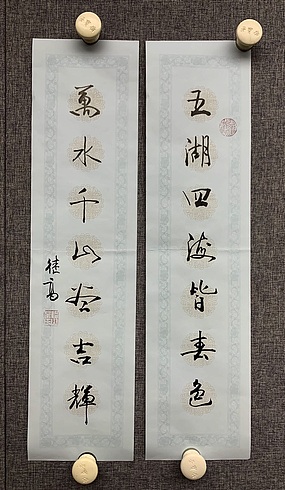 五湖四海皆春色
萬水千山盡吉輝